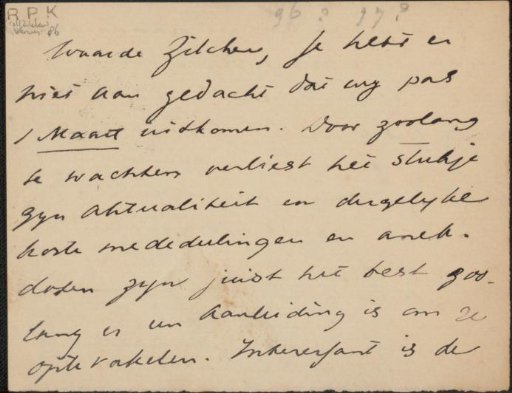 R P K
96? 97?
Waarde Zilcken, Je hebt er
niet aan gedacht dat wy pas
1 Maart uitkomen. Door zoolang
te wachten verliest het stukje
zyn aktualiteit en dergelyke
korte mededeelingen en anek-
doten zyn juist het best zoo-
lang er een aanleiding is om ze
opterakelen. Interessant is de